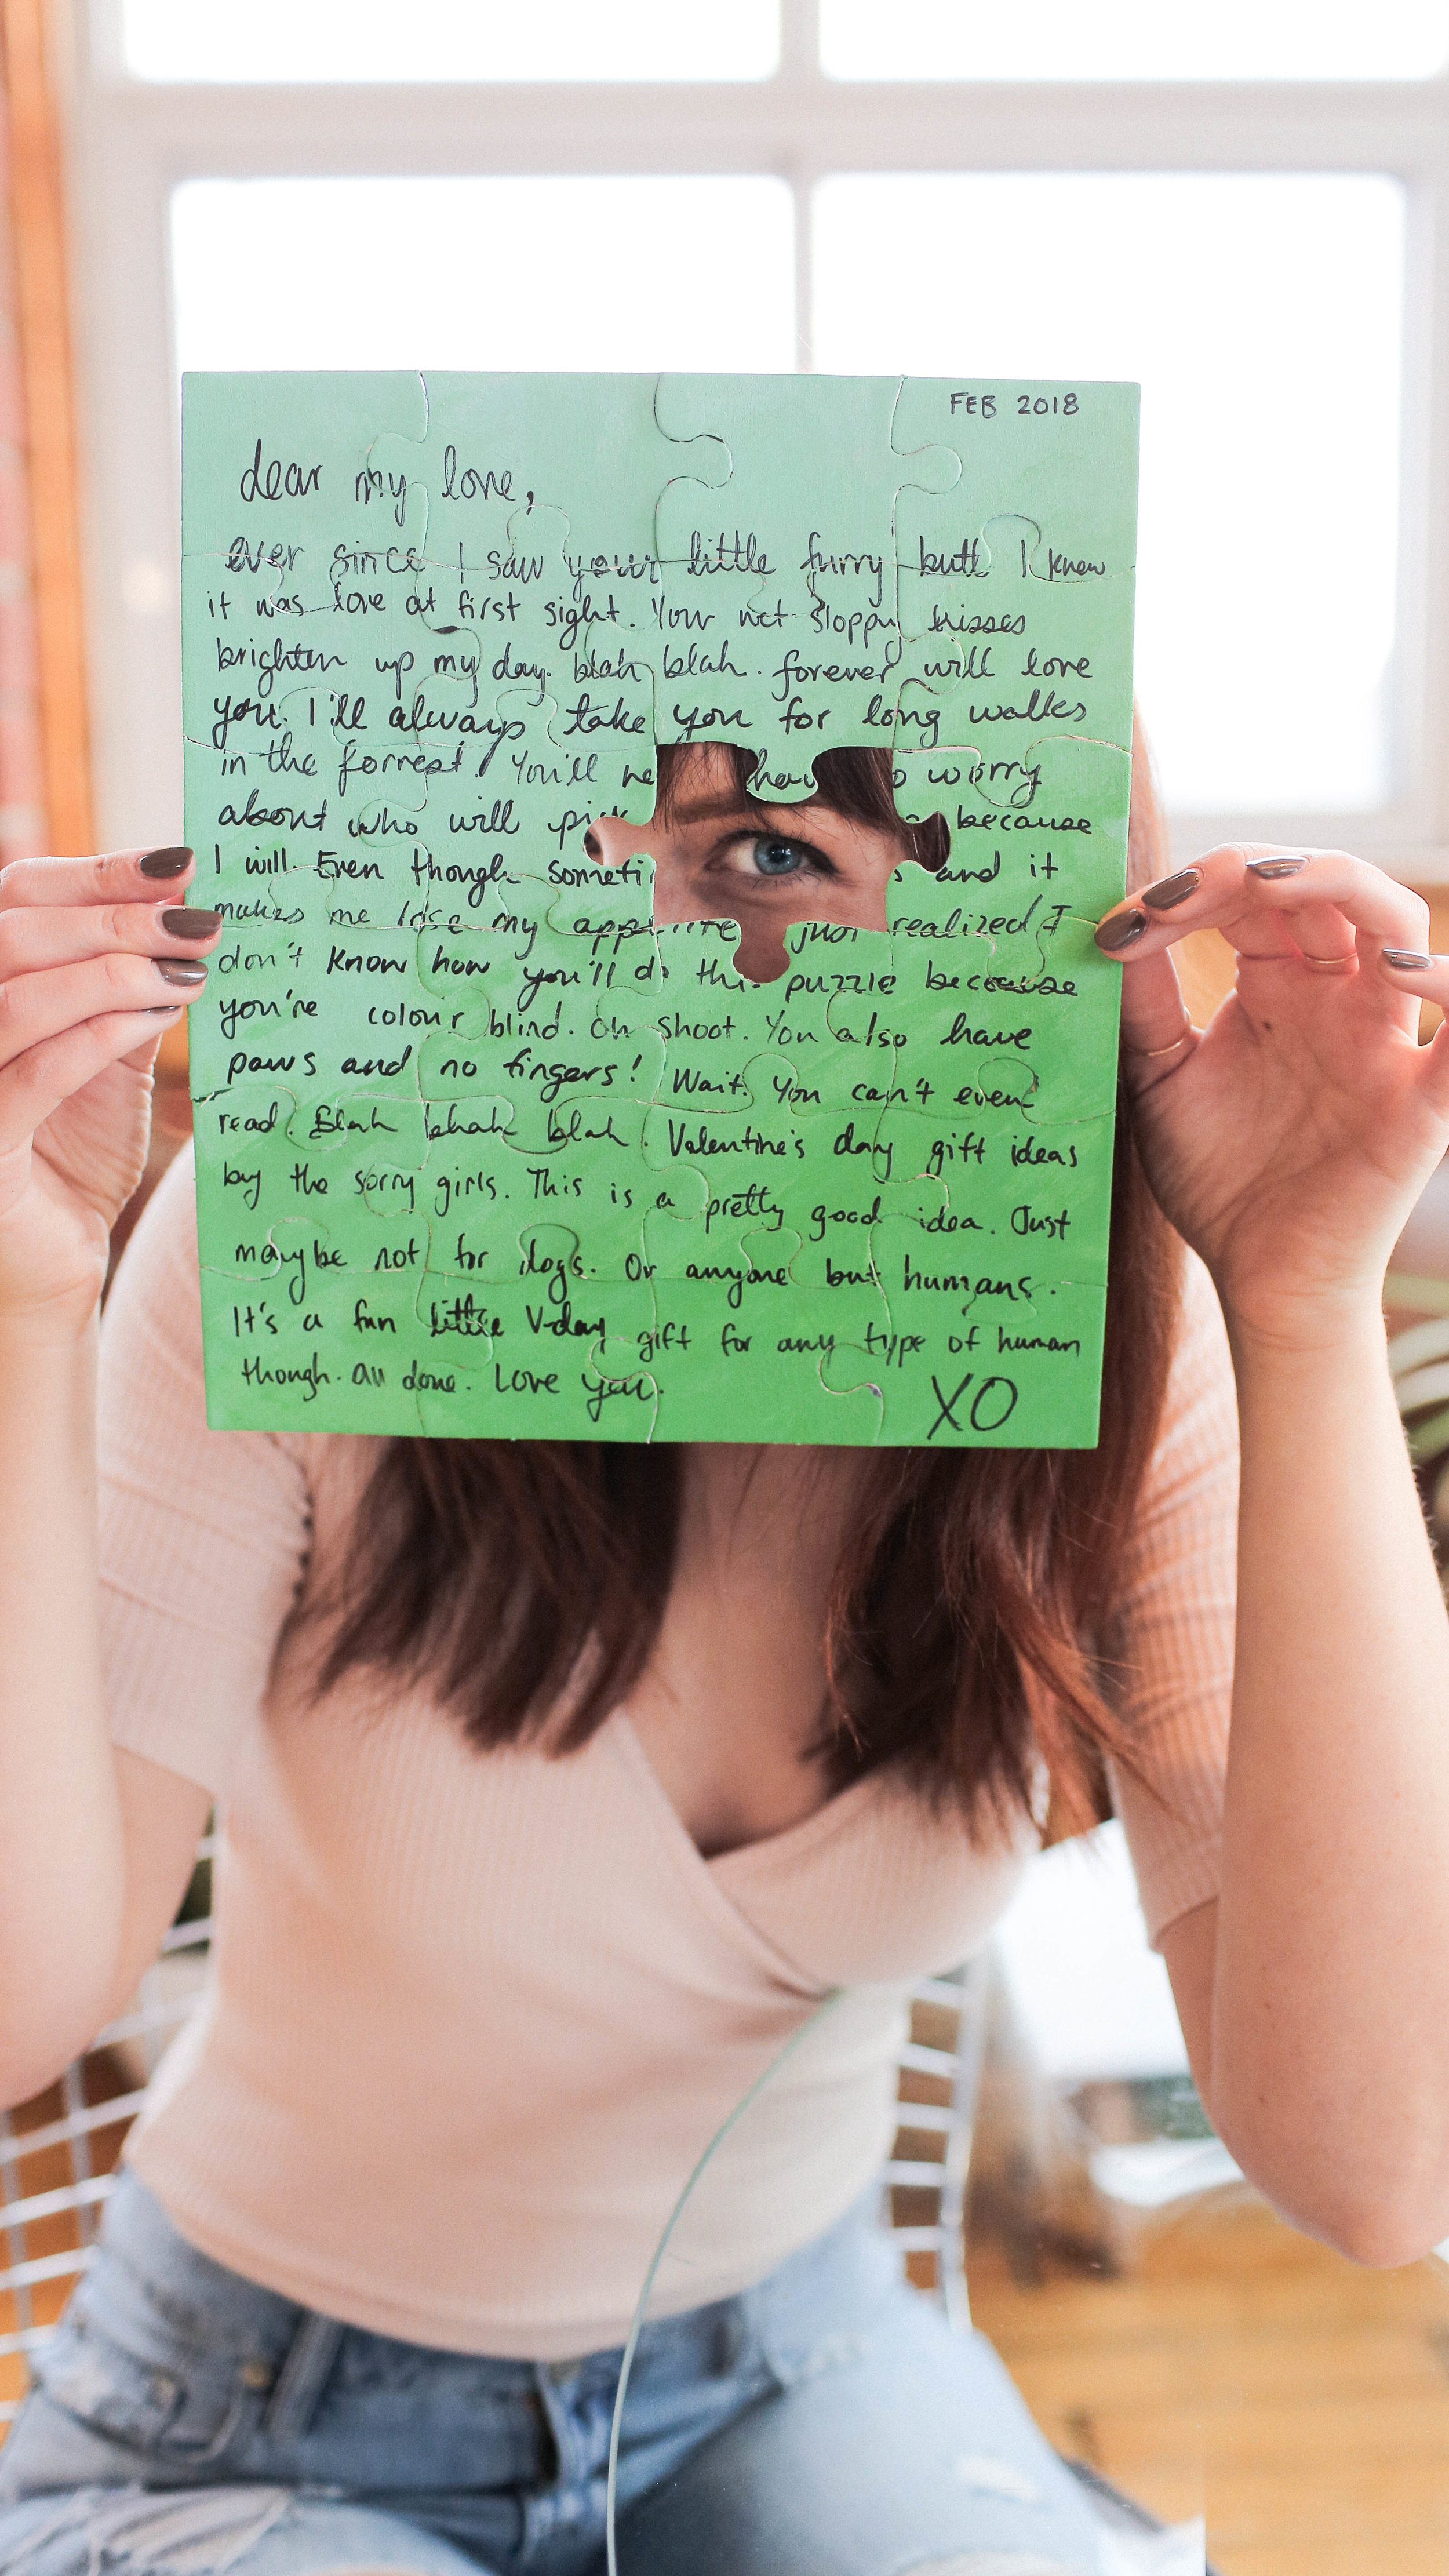 FEB 2018
dear my love,
ever since I saw your little furry butt I knew
it was love at first sight. Your wet sloppy kisses
brighten up my day. blah blah. forever will love
you. I'll always take you for long walks
in the forrest. You'll ne hav o worry
about who will pi because
I will. Even though someti s and it
makes me lose my appetite just realized I
don't know how you'll do this puzzle because
you're colour blind. Oh shoot. You also have
paws and no fingers! Wait. You can't even
read. Blah blah blah. Valentine's day gift ideas
by the sorry girls. This is a pretty good idea. Just
maybe not for dogs. Or anyone but humans.
It's a fun little V-day gift for any type of human
though. All done. Love you.
XO